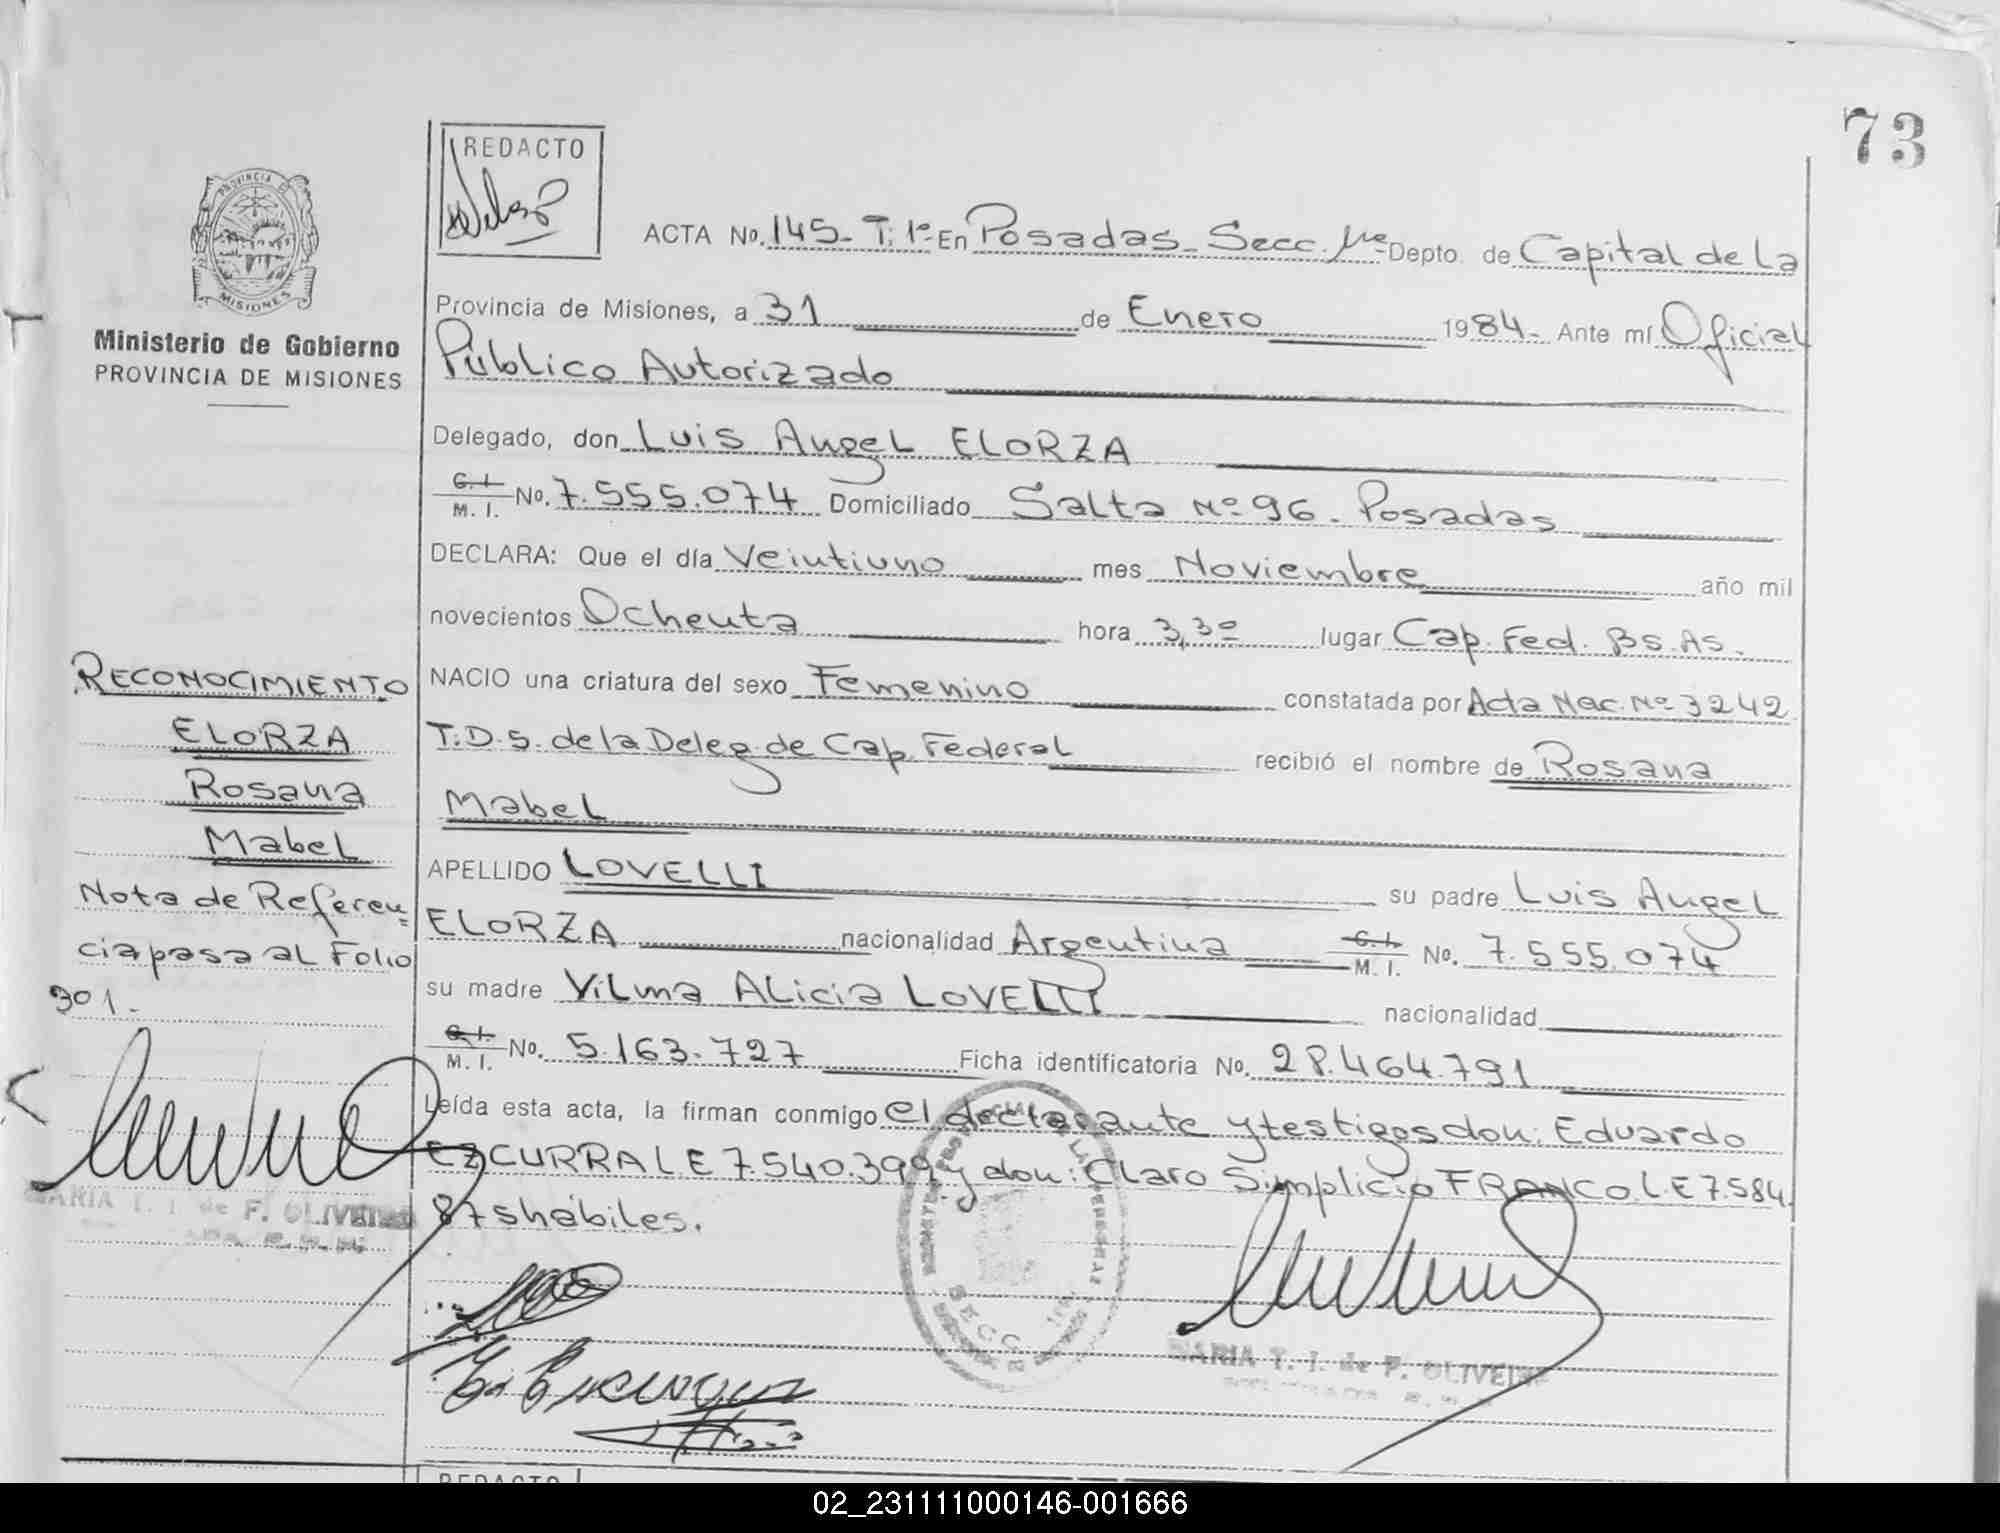 73
REDACTO
PROVINCIA DE
MISIONES
Ministerio de Gobierno
PROVINCIA DE MISIONES
ACTA No. 145- T: 1º- En Posadas- Secc. 1ra Depto. de Capital de la
Provincia de Misiones, a 31 de Enero 1984- Ante mí Oficial
Público Autorizado
Delegado, don Luis Angel ELORZA
C. I. M. I. No. 7.555.074 Domiciliado Salta Nº 96. Posadas
DECLARA: Que el día Veintiuno mes Noviembre año mil
novecientos Ochenta hora 3,30 lugar Cap. Fed. Bs. As.
NACIO una criatura del sexo Femenino constatada por Acta Nac. Nº 3242
T.D.5. de la Deleg. de Cap. Federal recibió el nombre de Rosana
Mabel
APELLIDO LOVELLI su padre Luis Angel
ELORZA nacionalidad Argentina C. I. M. I. No. 7.555.074
su madre Vilma Alicia LOVELLI nacionalidad
C. I. M. I. No. 5.163.727 Ficha identificatoria No. 28.464.791
Leída esta acta, la firman conmigo el declarante y testigos don: Eduardo
EZCURRA L E 7.540.399 y don: Claro Simplicio FRANCO L E 7.584.
875 hábiles.
RECONOCIMIENTO
ELORZA
Rosana
Mabel
Nota de Referen
cia pasa al Folio
301.
MARIA T. I. de F. OLIVEIRA
SECC
MARIA T. I. de F. OLIVEIRA
REDACTO
02_231111000146-001666